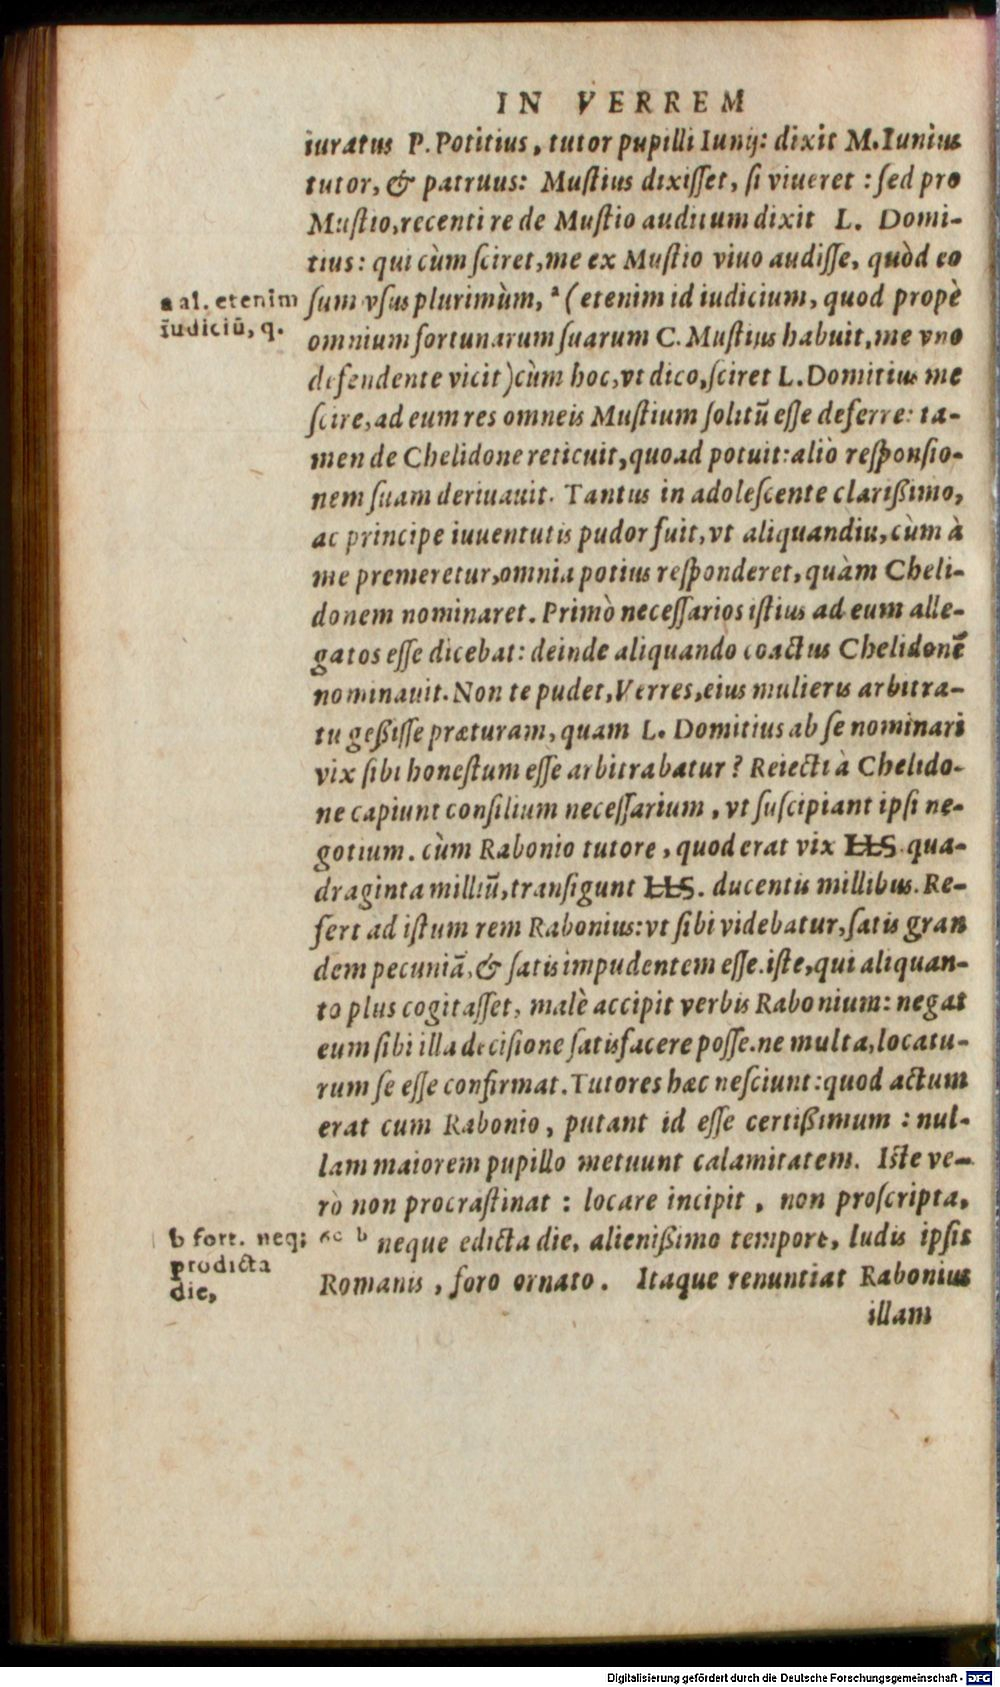 IN VERREM
iuratus P. Potitius, tutor pupilli Iunij: dixit M. Iunius
tutor, & patruus: Muſtius dixiſſet, ſi viueret: ſed pro
Muſtio, recenti re de Muſtio auditum dixit L. Domi-
tius: qui cùm ſciret, me ex Muſtio viuo audiſſe, quòd eo
a al. etenim
iudiciū, q.
ſum vſus plurimùm, ª (etenim id iudicium, quod propè
omnium fortunarum ſuarum C. Muſtius habuit, me vno
defendente vicit) cùm hoc, vt dico, ſciret L. Domitius me
ſcire, ad eum res omneis Muſtium ſolitū eſſe deferre: ta-
men de Chelidone reticuit, quoad potuit: aliò reſponſio-
nem ſuam deriuauit. Tantus in adoleſcente clarißimo,
ac principe iuuentutis pudor fuit, vt aliquandiu, cùm à
me premeretur, omnia potius reſponderet, quàm Cheli-
donem nominaret. Primò neceſſarios iſtius ad eum alle-
gatos eſſe dicebat: deinde aliquando coactus Chelidonē
nominauit. Non te pudet, Verres, eius mulieris arbitra-
tu geßiſſe præturam, quam L. Domitius ab ſe nominari
vix ſibi honeſtum eſſe arbitrabatur? Reiecti à Chelido-
ne capiunt conſilium neceſſarium, vt ſuſcipiant ipſi ne-
gotium. cùm Rabonio tutore, quod erat vix LLS. qua-
draginta milliū, tranſigunt LLS. ducentis millibus. Re-
fert ad iſtum rem Rabonius: vt ſibi videbatur, ſatis gran
dem pecuniā, & ſatis impudentem eſſe. iſte, qui aliquan-
to plus cogitaſſet, malè accipit verbis Rabonium: negat
eum ſibi illa deciſione ſatisfacere poſſe. ne multa, locatu-
rum ſe eſſe confirmat. Tutores hæc neſciunt: quod actum
erat cum Rabonio, putant id eſſe certißimum: nul-
lam maiorem pupillo metuunt calamitatem. Iſte ve-
rò non procraſtinat: locare incipit, non proſcripta,
b fort. neq;
prodicta
die,
ac ᵇ neque edicta die, alienißimo tempore, ludis ipſis
Romanis, foro ornato. Itaque renuntiat Rabonius
illam
Digitalisierung gefördert durch die Deutsche Forschungsgemeinschaft - DFG